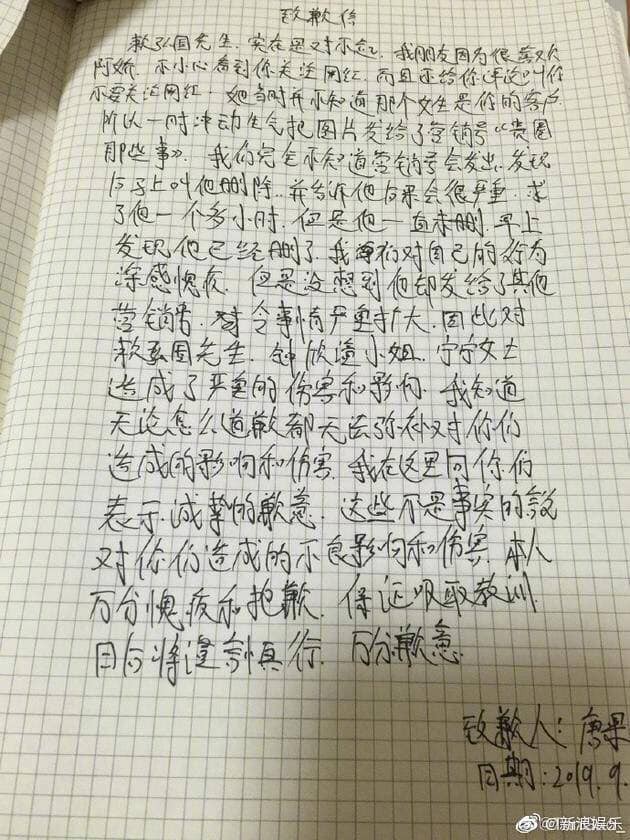 致歉信
赖弘国先生. 实在是对不起. 我朋友因为很喜欢
阿娇. 不小心看到你关注网红. 而且还给你评论叫你
不要关注网红. 她当时并不知道那个女生是你的客户
所以一时冲动生气把图片发给了营销号“贵圈
那些事”. 我们完全不知道营销号会发出. 发现
后马上叫他删除. 并告诉他后果会很严重. 求
了他一个多小时. 但是他一直未删. 早上
发现他已经删了. 我们对自己的行为
深感愧疚. 但是没想到他却发给了其他
营销号. 令事情严重扩大. 因此对
赖弘国先生. 钟欣潼小姐. 宁宁女士
造成了严重的伤害和影响. 我知道
无论怎么道歉都无法弥补对你们
造成的影响和伤害. 我在这里向你们
表示诚挚的歉意. 这些不是事实的言论
对你们造成的不良影响和伤害. 本人
万分愧疚和抱歉. 保证吸取教训
日后将谨言慎行. 万分歉意.
致歉人:唐果
日期:2019.9.
@新浪娱乐